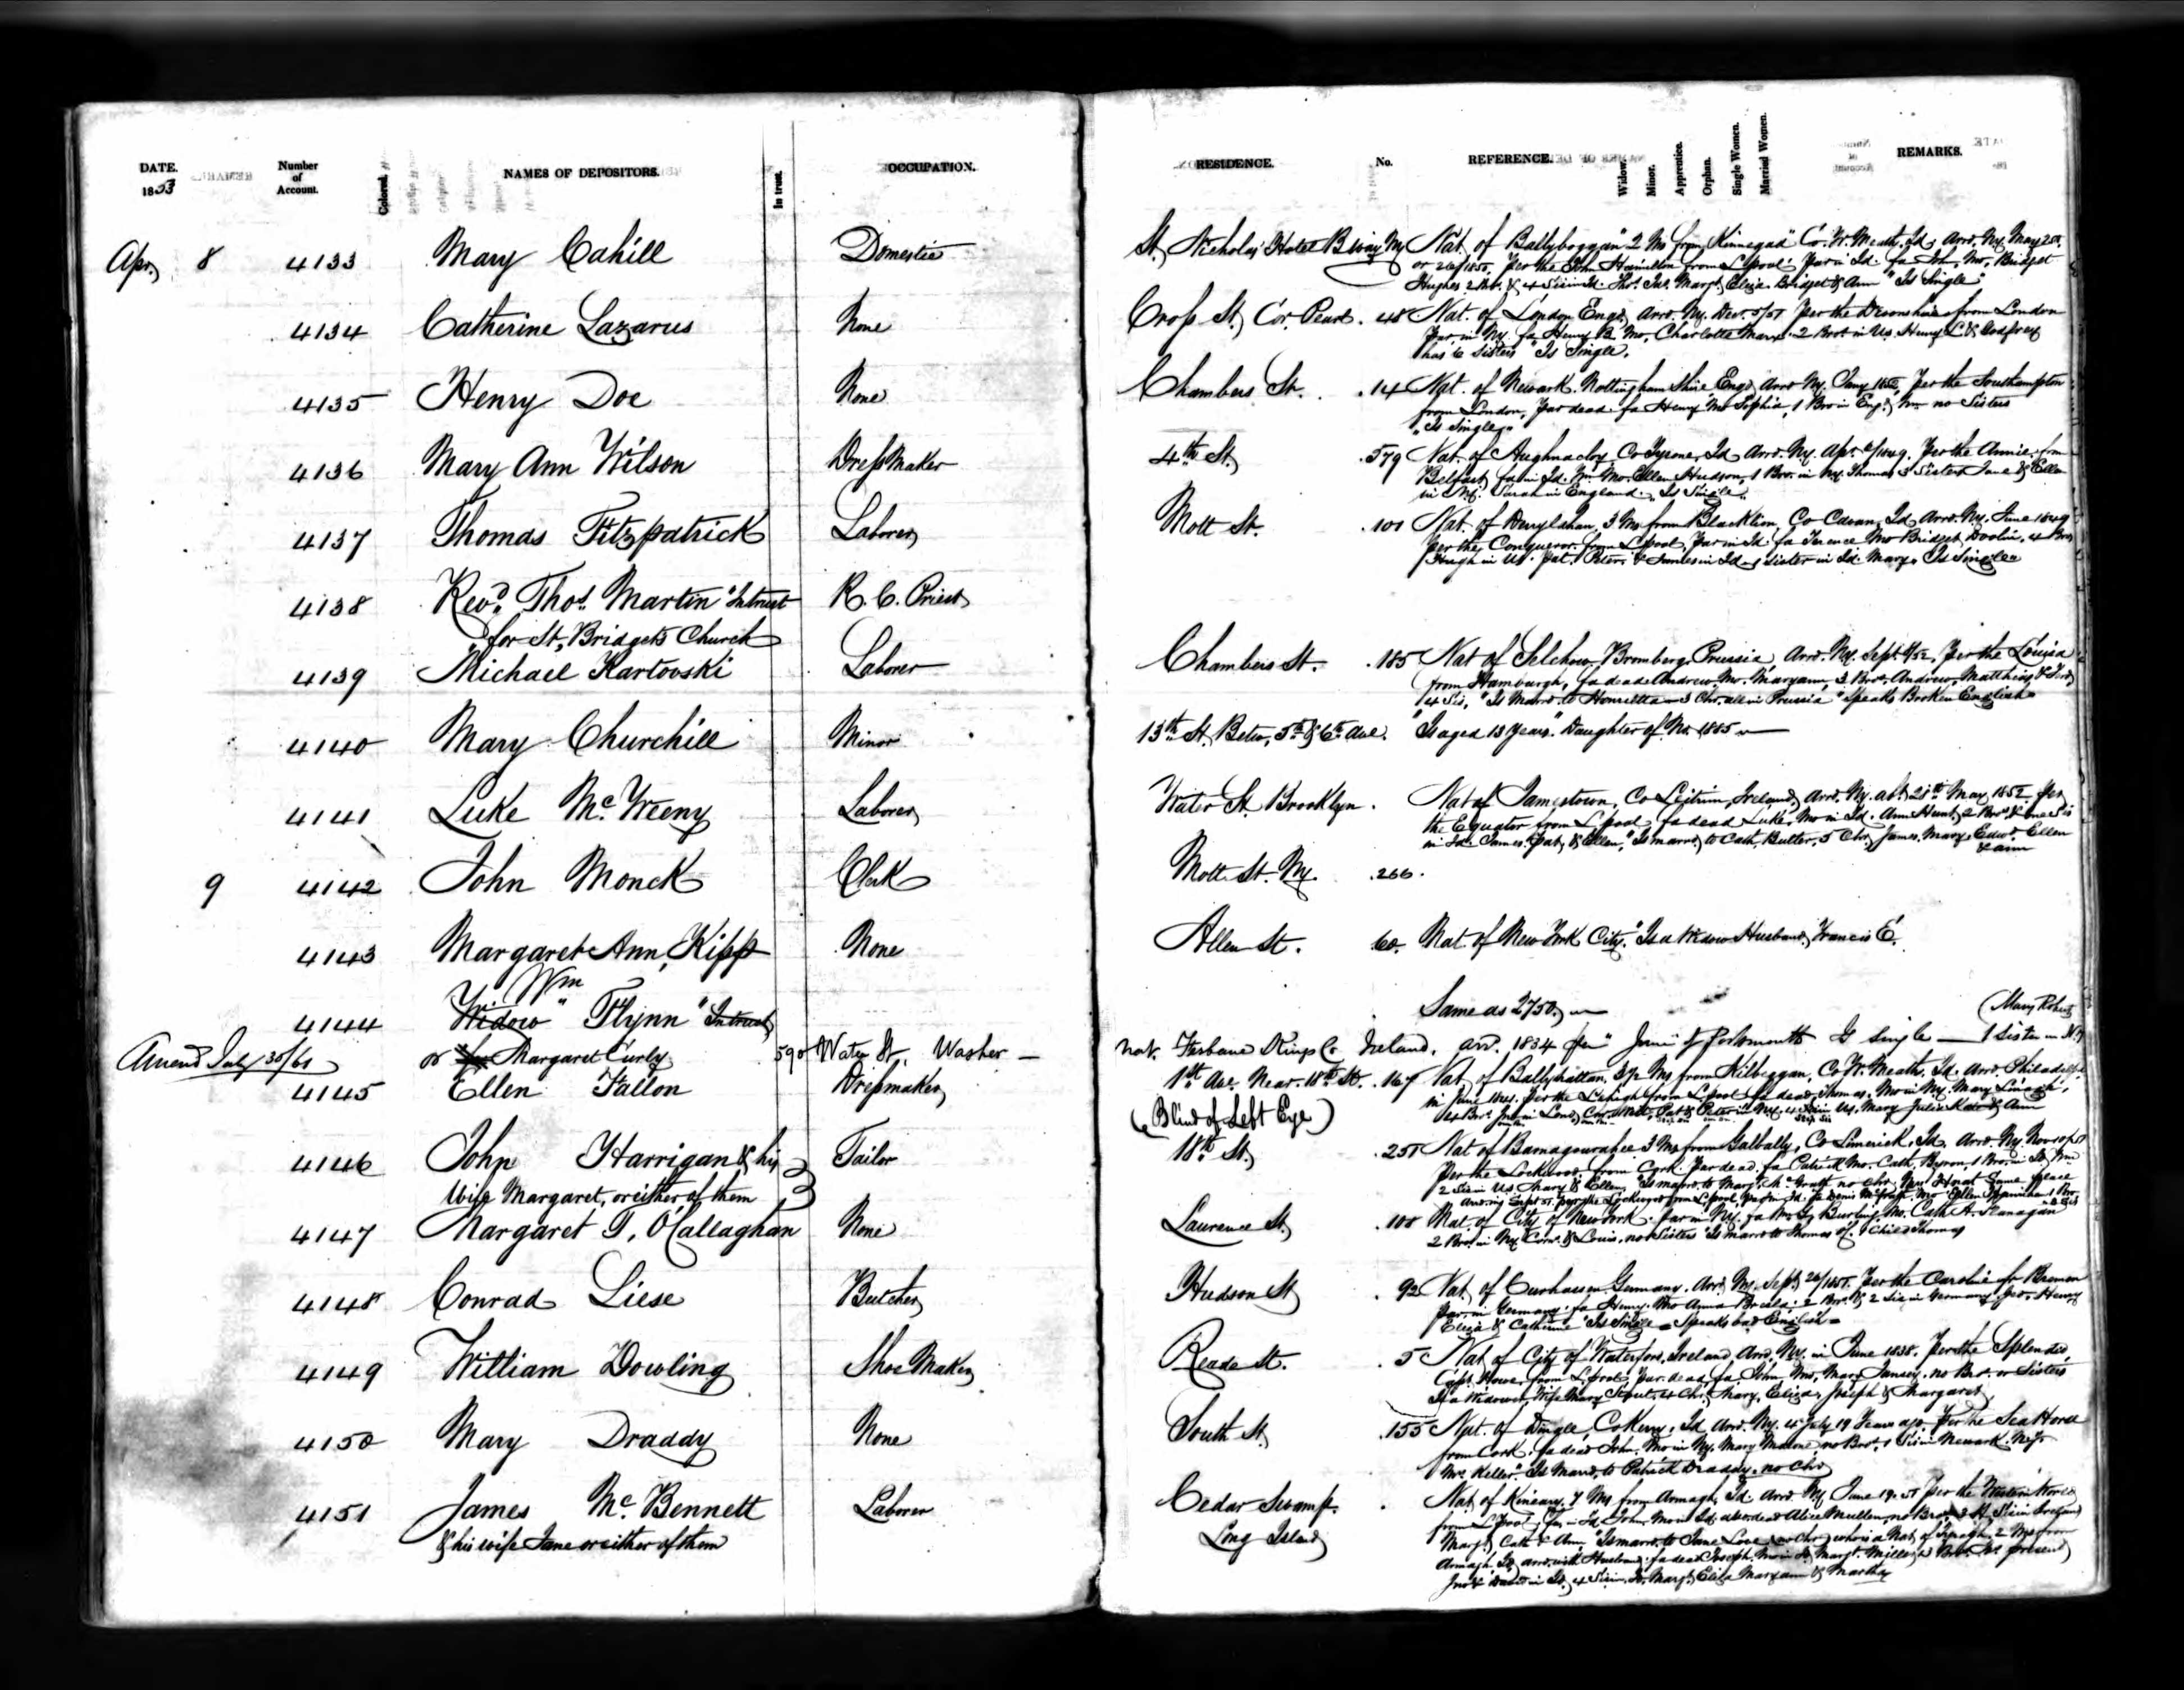 DATE.
1853
Number
of
Account.
Colored.
NAMES OF DEPOSITORS.
In trust.
OCCUPATION.
RESIDENCE.
No.
REFERENCE.
Widow.
Minor.
Apprentice.
Orphan.
Single Women.
Married Women.
REMARKS.
Apr, 8 4133 Mary Cahill Domestic St, Nicholas Hotel B.way Ny Nat, of Ballyboggan" 2 Ms from Kinnegad" Co. W. Meath, Id, Arrd. Ny. May 25th
or 26/1850. Per the John Hamilton from L.pool. Par in Id. fa John, Mo, Bridget
Hughes 2 Bro. & 4 Sis in Id. Thos. Jas. Margt, Eliza Bridget & Ann "Is Single"
4134 Catherine Lazarus None Cross St, Cor. Pearl. 48 Nat. of London Engd, Arrd. Ny. Dec. 5/51 Per the Devonshire from London
Par in Ny. fa Henry B. Mo, Charlotte Marx. 2 Bros. in Us. Henry L. & Godfrey
has 6 Sisters "Is Single.
4135 Henry Doe None Chambers St. .14 Nat. of Newark. Nottingham Shire Engd, Arrd Ny. Jany 1852, Per the Southampton
from London, Par dead. fa Henry Mo Sophia, 1 Bro in Engd, Wm no Sisters
"Is Single"
4136 Mary Ann Wilson DressMaker 4th St, .579 Nat. of Aughnacloy Co Tyrone, Id Arrd. Ny. Apr. 6/1849. Per the Annie, from
Belfast, fa in Id. Wm. Mo. Ellen Hudson, 1 Bro. in Ny. Thomas 3 Sisters Jane & Ellen
in Ny. Sarah in England. "Is Single"
4137 Thomas Fitzpatrick Laborer, Mott St. .101 Nat. of Derrylahan, 3 Ms from Blacklion, Co Cavan, Id, Arrd. Ny. June 1849
per the, Conqueror from L.pool, Par in Id. fa Terence Mo Bridget Doolin, 4 Bros
Hugh in Us. Pat. Peter & James in Id. 1 Sister in Id. Mary, Is Single
4138 Revd. Thos. Martin "Intrust R. C. Priest
"for St, Bridgets Church
4139 Michael Kartovski Laborer Chambers St. .185 Nat of Selchow, Bromberg, Prussia, Arrd. Ny. Sept. 9/52, Per the Louisa
from Hamburgh, fa dead Andrew, Mo. Maryann, 3 Bros. Andrew, Matthias &
4 Sis, "Is Marrd. to Henrietta 3 Chr. all in Prussia "Speaks Broken English"
4140 Mary Churchill Minor 13th St, Betw, 5th & 6th Ave. "Is aged 13 Years." Daughter of No. 1885
4141 Luke Mc. Weeny Laborer, Water St Brooklyn. Nat of Jamestown, Co Leitrim, Ireland, Arrd. Ny. abt. 21st May 1852 Per
the Equator from L.pool, fa dead Luke, Mo in Id. Ann Hunt, 2 Bros. & one Sis
in Id. James, Pat, & Ellen, "Is marrd. to Cath, Butler, 5 Chr, James, Mary, Edwd, Ellen
& ann
9 4142 John Monck Clerk Mott St. Ny. .266.
4143 Margaret Ann, Kipp None Allen St. 60. Nat. of New York City, "Is a Widow Husband, Francis E.
Wm
4144 Widow " Flynn "Intrust, Same as 2750, (Mary Roberts
Amend July 30/61 or for Margaret Curly 590 Water St, Washer nat. Ferbane Kings Co Ireland. arr. 1834 per " June" f Portsmouth Is single 1 Sister in N.Y.
4145 Ellen Fallon Dressmaker, 1st Ave. Near. 18th St. .167 Nat, of Ballyhattan, 3½ Ms from Kilbeggan, Co. W. Meath, Id. Arrd. Philadelphia
in June, per the Lehigh from L.pool, fa dead, Thomas, Mo in Ny. Mary
(Blind of Left Eye)
4 Bro. Pat & Peter in Ny. 4 Sis in Us. Mary Julia Kate & Ann
4146 John Harrigan & his Tailor 18th St, .251 Nat of 3 Ms from Galbally, Co Limerick, Id. Arrd. Ny. Nov
Wife Margaret, or either of them Per the Lockwood, from Cork, Par dead. fa Patrick Mo. Cath, Byron, 1 Bro. in
2 Sis in Us Mary & Ellen, "Is marrd. to Margt. Mc Grath no chr,
4147 Margaret T, O'Callaghan None Laurence St, .108 Nat. of City of New York. Par in Ny. fa Burling Mo. Cath A. Flanagan
2 Bros. in Ny. Corns. & Louis, no Sisters "Is marrd to Thomas 1 Child Thomas
4148 Conrad Liese Butcher, Hudson St, . 92 Nat, of Germany, Arrd. Ny. Sept, 26/1851. Per the Caroline fr Bremen
par in Germany. fa Henry. Mo Anna 2 Bro. & 2 Sis in Germany, Henry
Eliza & Catherine "Is Single = Speaks bad English =
4149 William Dowling Shoe Maker, Reade St. . 5 Nat, of City of Waterford, Ireland, Arrd. Ny. in June 1838. Per the Splendid
Capt. Howe, from L.pool, par. dead, fa, John Mo, Mary no Bro. or Sisters
Is a Widower, Wife Mary 4 Chr, Mary, Eliza, Joseph & Margaret,
4150 Mary Draddy None South St, .155 Nat. of Dingle, Co Kerry, Id Arrd. Ny. 4 July 19 Years ago, Per the Sea Horse
from Cork, fa dead John, Mo in Ny. Mary Malone, no Bros, 1 Sis in Newark. N.J.
Mrs. Keller. "Is Marrd. to Patrick Draddy, no Chr,
4151 James Mc. Bennett Laborer Cedar Swamp. . Nat, of 7 Ms from Armagh, Id. Arrd. Ny. June 19. 51 Per the Western World
& his wife Jane or either of them Long Island, from L.Pool, fa in Id. John, Mo in Id. Alice Mullen, no Bro.
Margt, Cath & Ann, "Is marrd. to Jane Love, no Chr, who is a Nat, of 2 Ms from
Armagh, Id, arrd. with Husband. fa dead Joseph, Mo in Id, Margt.
Jno & David in Id, 4 Sis in Id, Margt, Eliza Maryann & Martha